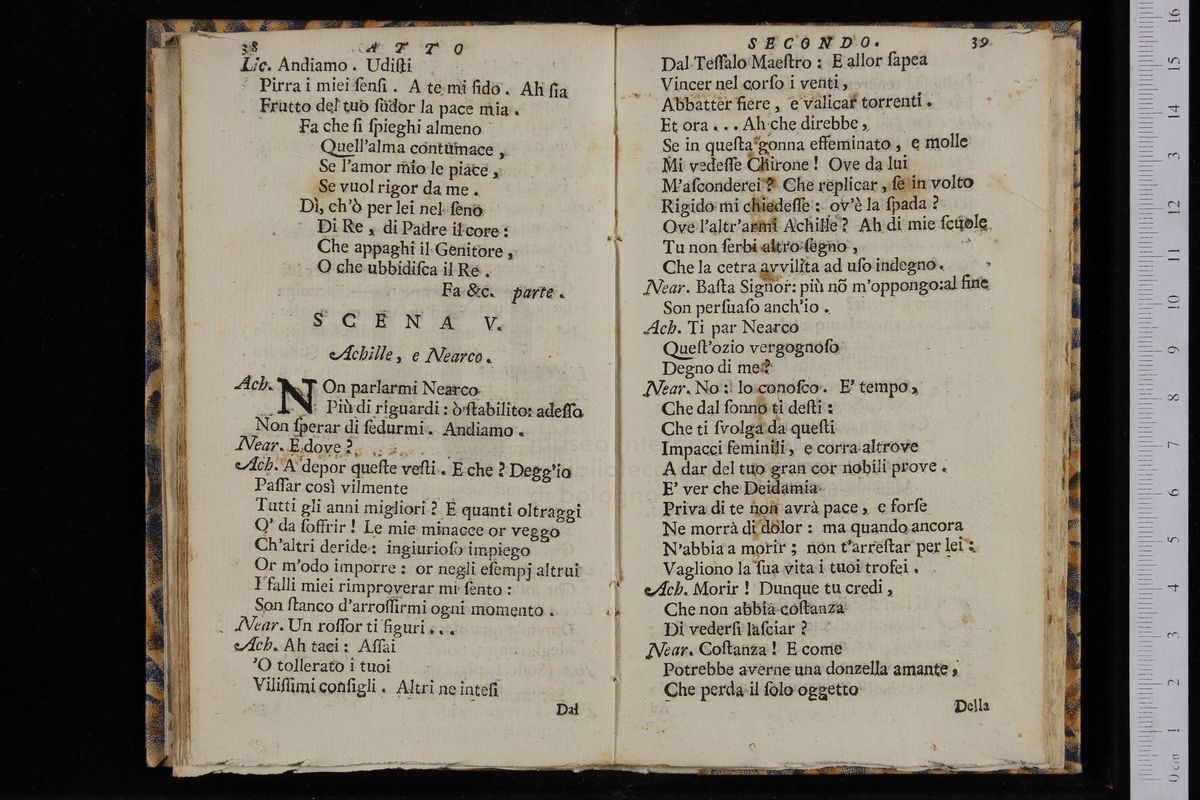 38 ATTO
Lic. Andiamo. Udiſti
Pirra i miei ſenſi. A te mi fido. Ah ſia
Frutto del tuo ſudor la pace mia.
Fa che ſi ſpieghi almeno
Quell'alma contumace,
Se l'amor mio le piace,
Se vuol rigor da me.
Dì, ch'ò per lei nel ſeno
Di Re, di Padre il core:
Che appaghi il Genitore,
O che ubbidiſca il Re.
Fa &c. parte.
SCENA V.
Achille, e Nearco.
Ach. NOn parlarmi Nearco
Più di riguardi: ò ſtabilito: adeſſo
Non ſperar di ſedurmi. Andiamo.
Near. E dove?
Ach. A depor queſte veſti. E che? Degg'io
Paſſar così vilmente
Tutti gli anni migliori? E quanti oltraggi
O' da ſoffrir! Le mie minacce or veggo
Ch'altri deride: ingiurioſo impiego
Or m'odo imporre: or negli eſempj altrui
I falli miei rimproverar mi ſento:
Son ſtanco d'arroſſirmi ogni momento.
Near. Un roſſor ti figuri...
Ach. Ah taci: Aſſai
'O tollerato i tuoi
Viliſſimi conſigli. Altri ne inteſi
Dal
SECONDO. 39
Dal Teſſalo Maeſtro: E allor ſapea
Vincer nel corſo i venti,
Abbatter fiere, e valicar torrenti.
Et ora... Ah che direbbe,
Se in queſta gonna effeminato, e molle
Mi vedeſſe Chirone! Ove da lui
M'aſconderei? Che replicar, ſe in volto
Rigido mi chiedeſſe: ov'è la ſpada?
Ove l'altr'armi Achille? Ah di mie ſcuole
Tu non ſerbi altro ſegno,
Che la cetra avvilita ad uſo indegno.
Near. Baſta Signor: più nõ m'oppongo: al fine
Son perſuaſo anch'io.
Ach. Ti par Nearco
Queſt'ozio vergognoſo
Degno di me?
Near. No: lo conoſco. E' tempo,
Che dal ſonno ti deſti:
Che ti ſvolga da queſti
Impacci feminili, e corra altrove
A dar del tuo gran cor nobili prove.
E' ver che Deidamia
Priva di te non avrà pace, e forſe
Ne morrà di dolor: ma quando ancora
N'abbia a morir; non t'arreſtar per lei:
Vagliono la ſua vita i tuoi trofei.
Ach. Morir! Dunque tu credi,
Che non abbia coſtanza
Di vederſi laſciar?
Near. Coſtanza! E come
Potrebbe averne una donzella amante,
Che perda il ſolo oggetto
Della
0 cm 1 2 3 4 5 6 7 8 9 10 11 12 13 14 15 16